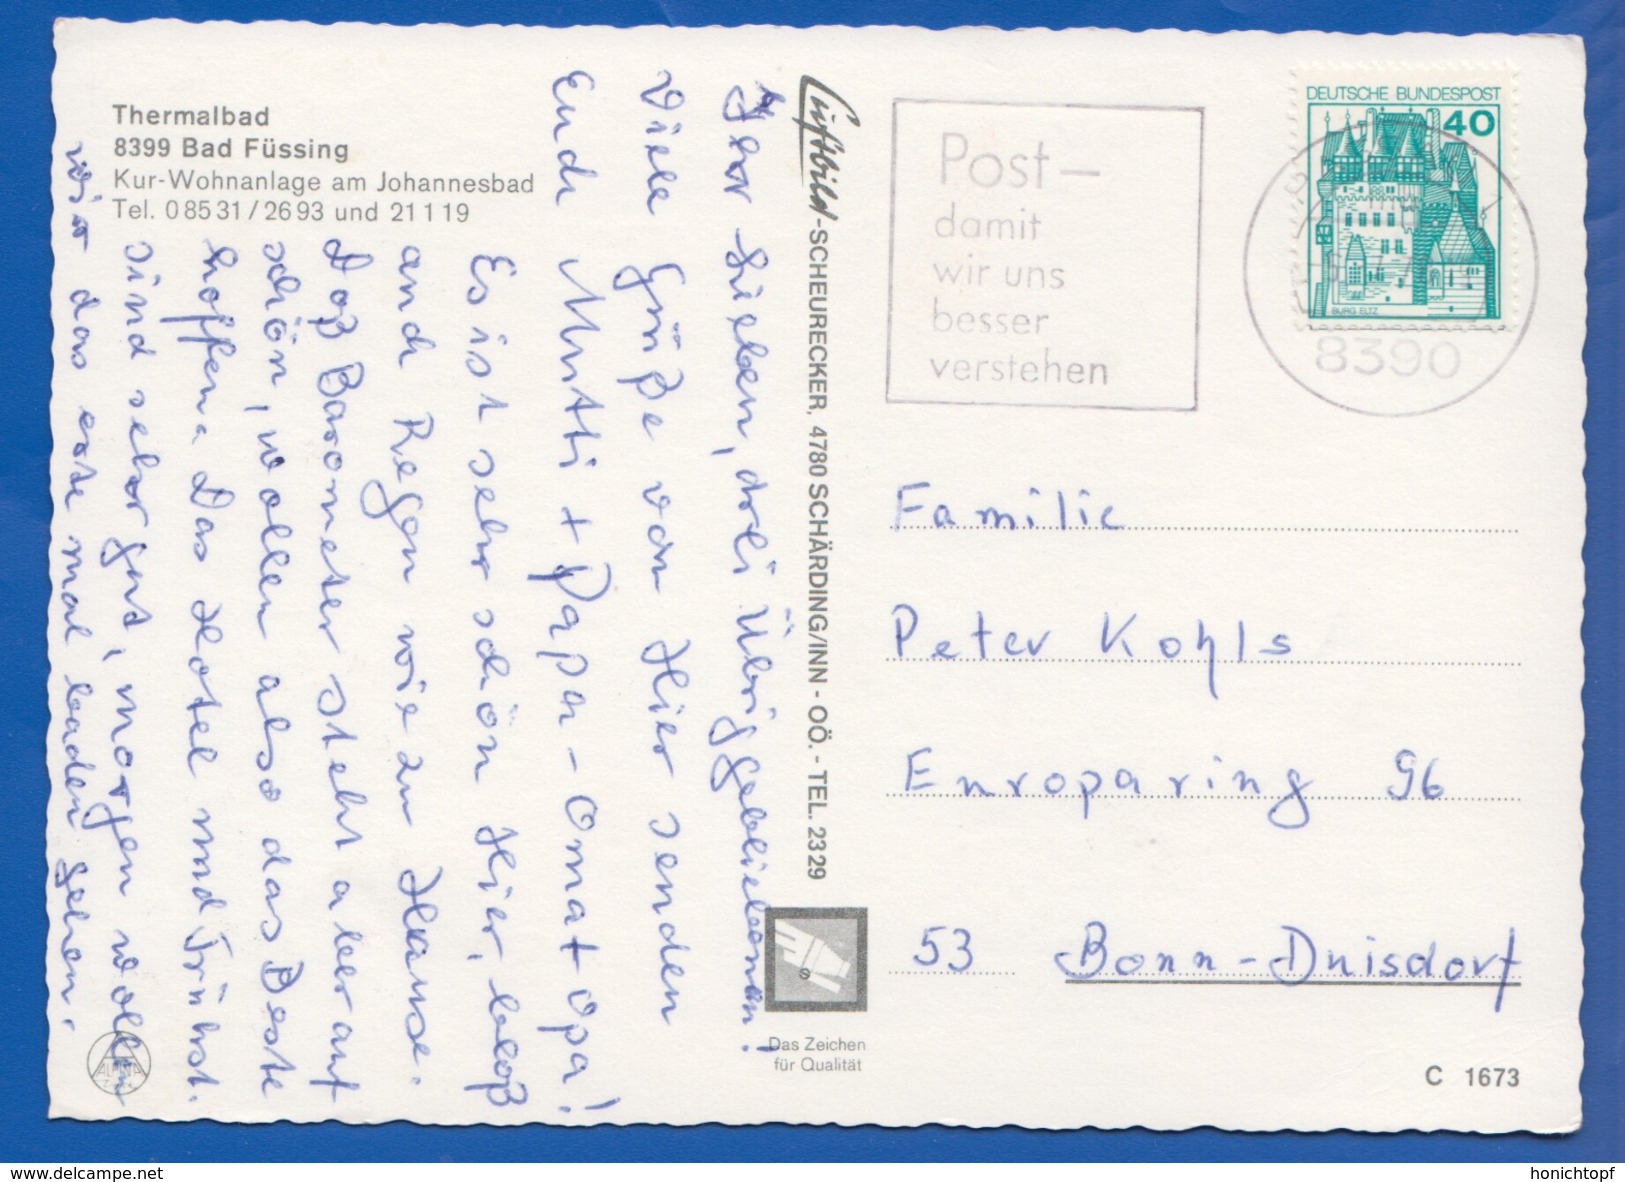 Thermalbad
8399 Bad Füssing
Kur-Wohnanlage am Johannesbad
Tel. 08531/2693 und 21119
Ihr Lieben, drei Übriggebliebenen!
Viele Grüße von Hier senden
Euch Mutti + Papa - Oma + Opa!
Es ist sehr schön Hier, bloß
auch Regen wie zu Hause.
Das Barometer steht aber auf
schön, wollen also das Beste
hoffen. Das Hotel und Frühst.
sind sehr gut, morgen wollen
wir das erste mal baden gehen.
Luftbild-SCHEURECKER, 4780 SCHÄRDING/INN - OÖ. - TEL. 2329
Das Zeichen
für Qualität
Post-
damit
wir uns
besser
verstehen
DEUTSCHE BUNDESPOST
40
BURG ELTZ
8390
Familie
Peter Kohls
Europaring 96
53 Bonn-Duisdorf
C 1673
www.delcampe.net
honichtopf